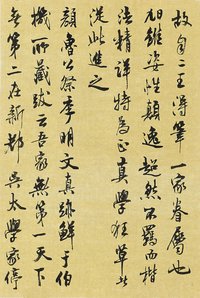 故自二王得筆一家眷屬也
旭雖姿性顛逸超然不羈而楷
法精詳特為正真學狂草者
從此進之
顏魯公祭季明文真跡鮮于伯
機所藏跋云吾家無第一天下
第二在新都吳太學家停